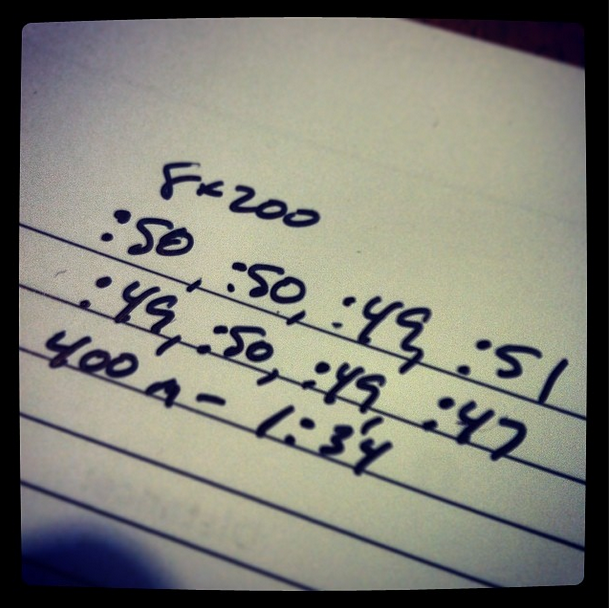 8x200
:50, :50, :49, :51
:49, :50, :49, :47
400m - 1:34